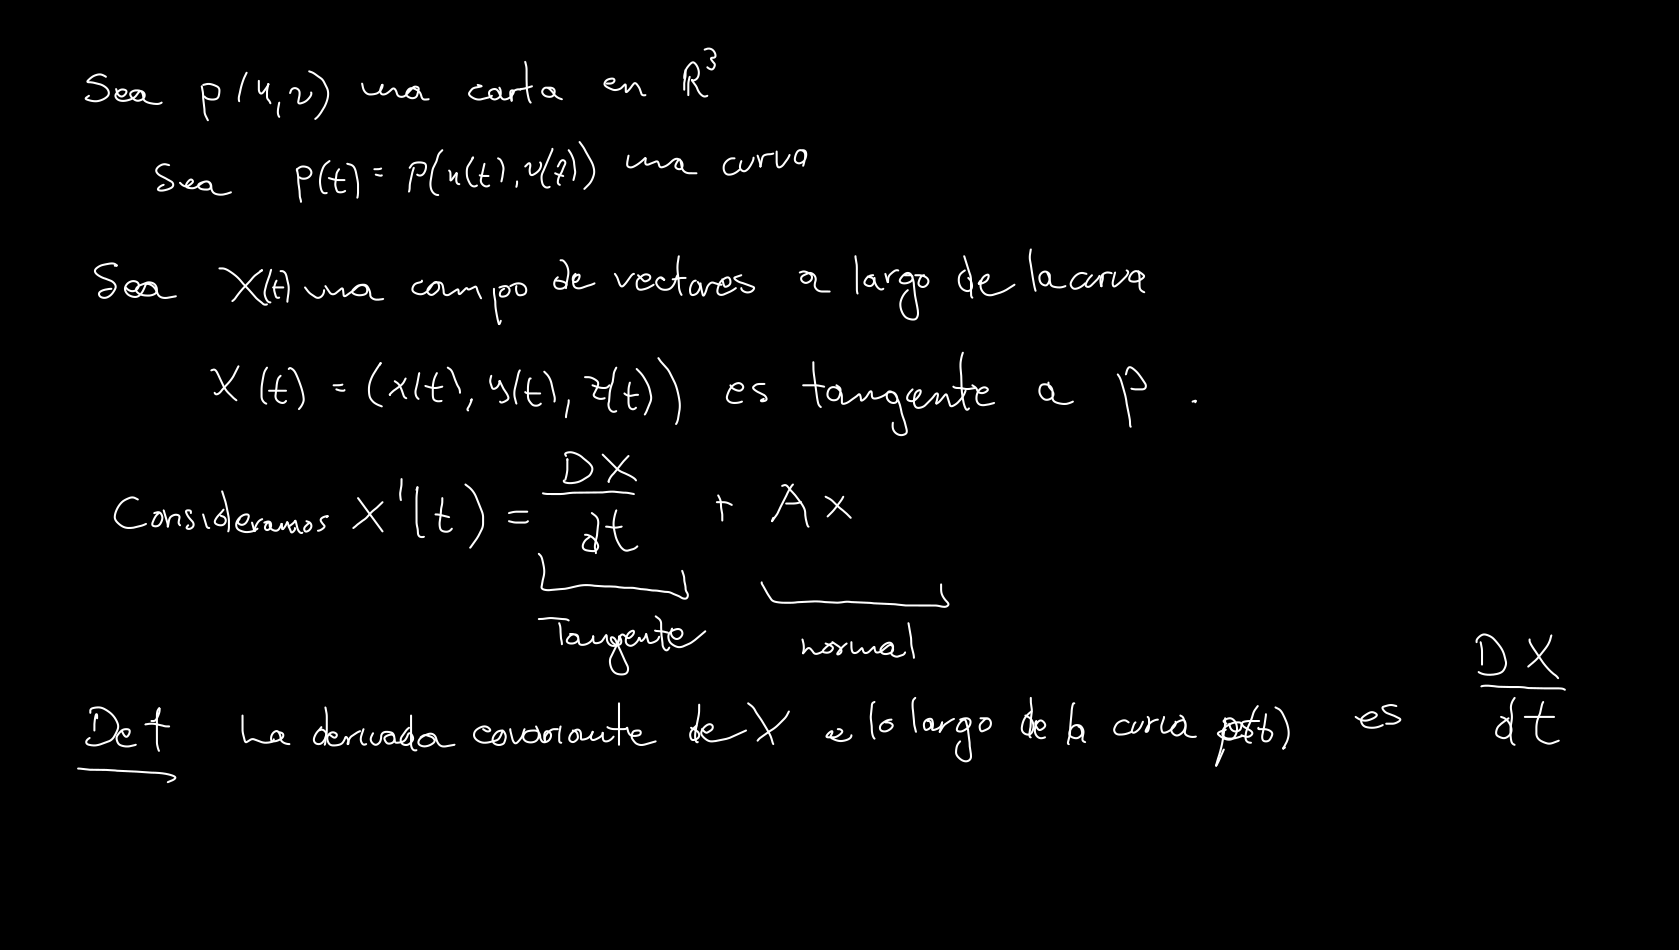 Sea p(u,v) una carta en R³
Sea p(t) = p(u(t), v(t)) una curva
Sea X(t) una campo de vectores a largo de la curva
X(t) = (x(t), y(t), z(t)) es tangente a p.
Consideramos X'(t) = DX/dt + A x
Tangente normal
Def La derivada covariante de X a lo largo de la curva p(t) es DX/dt